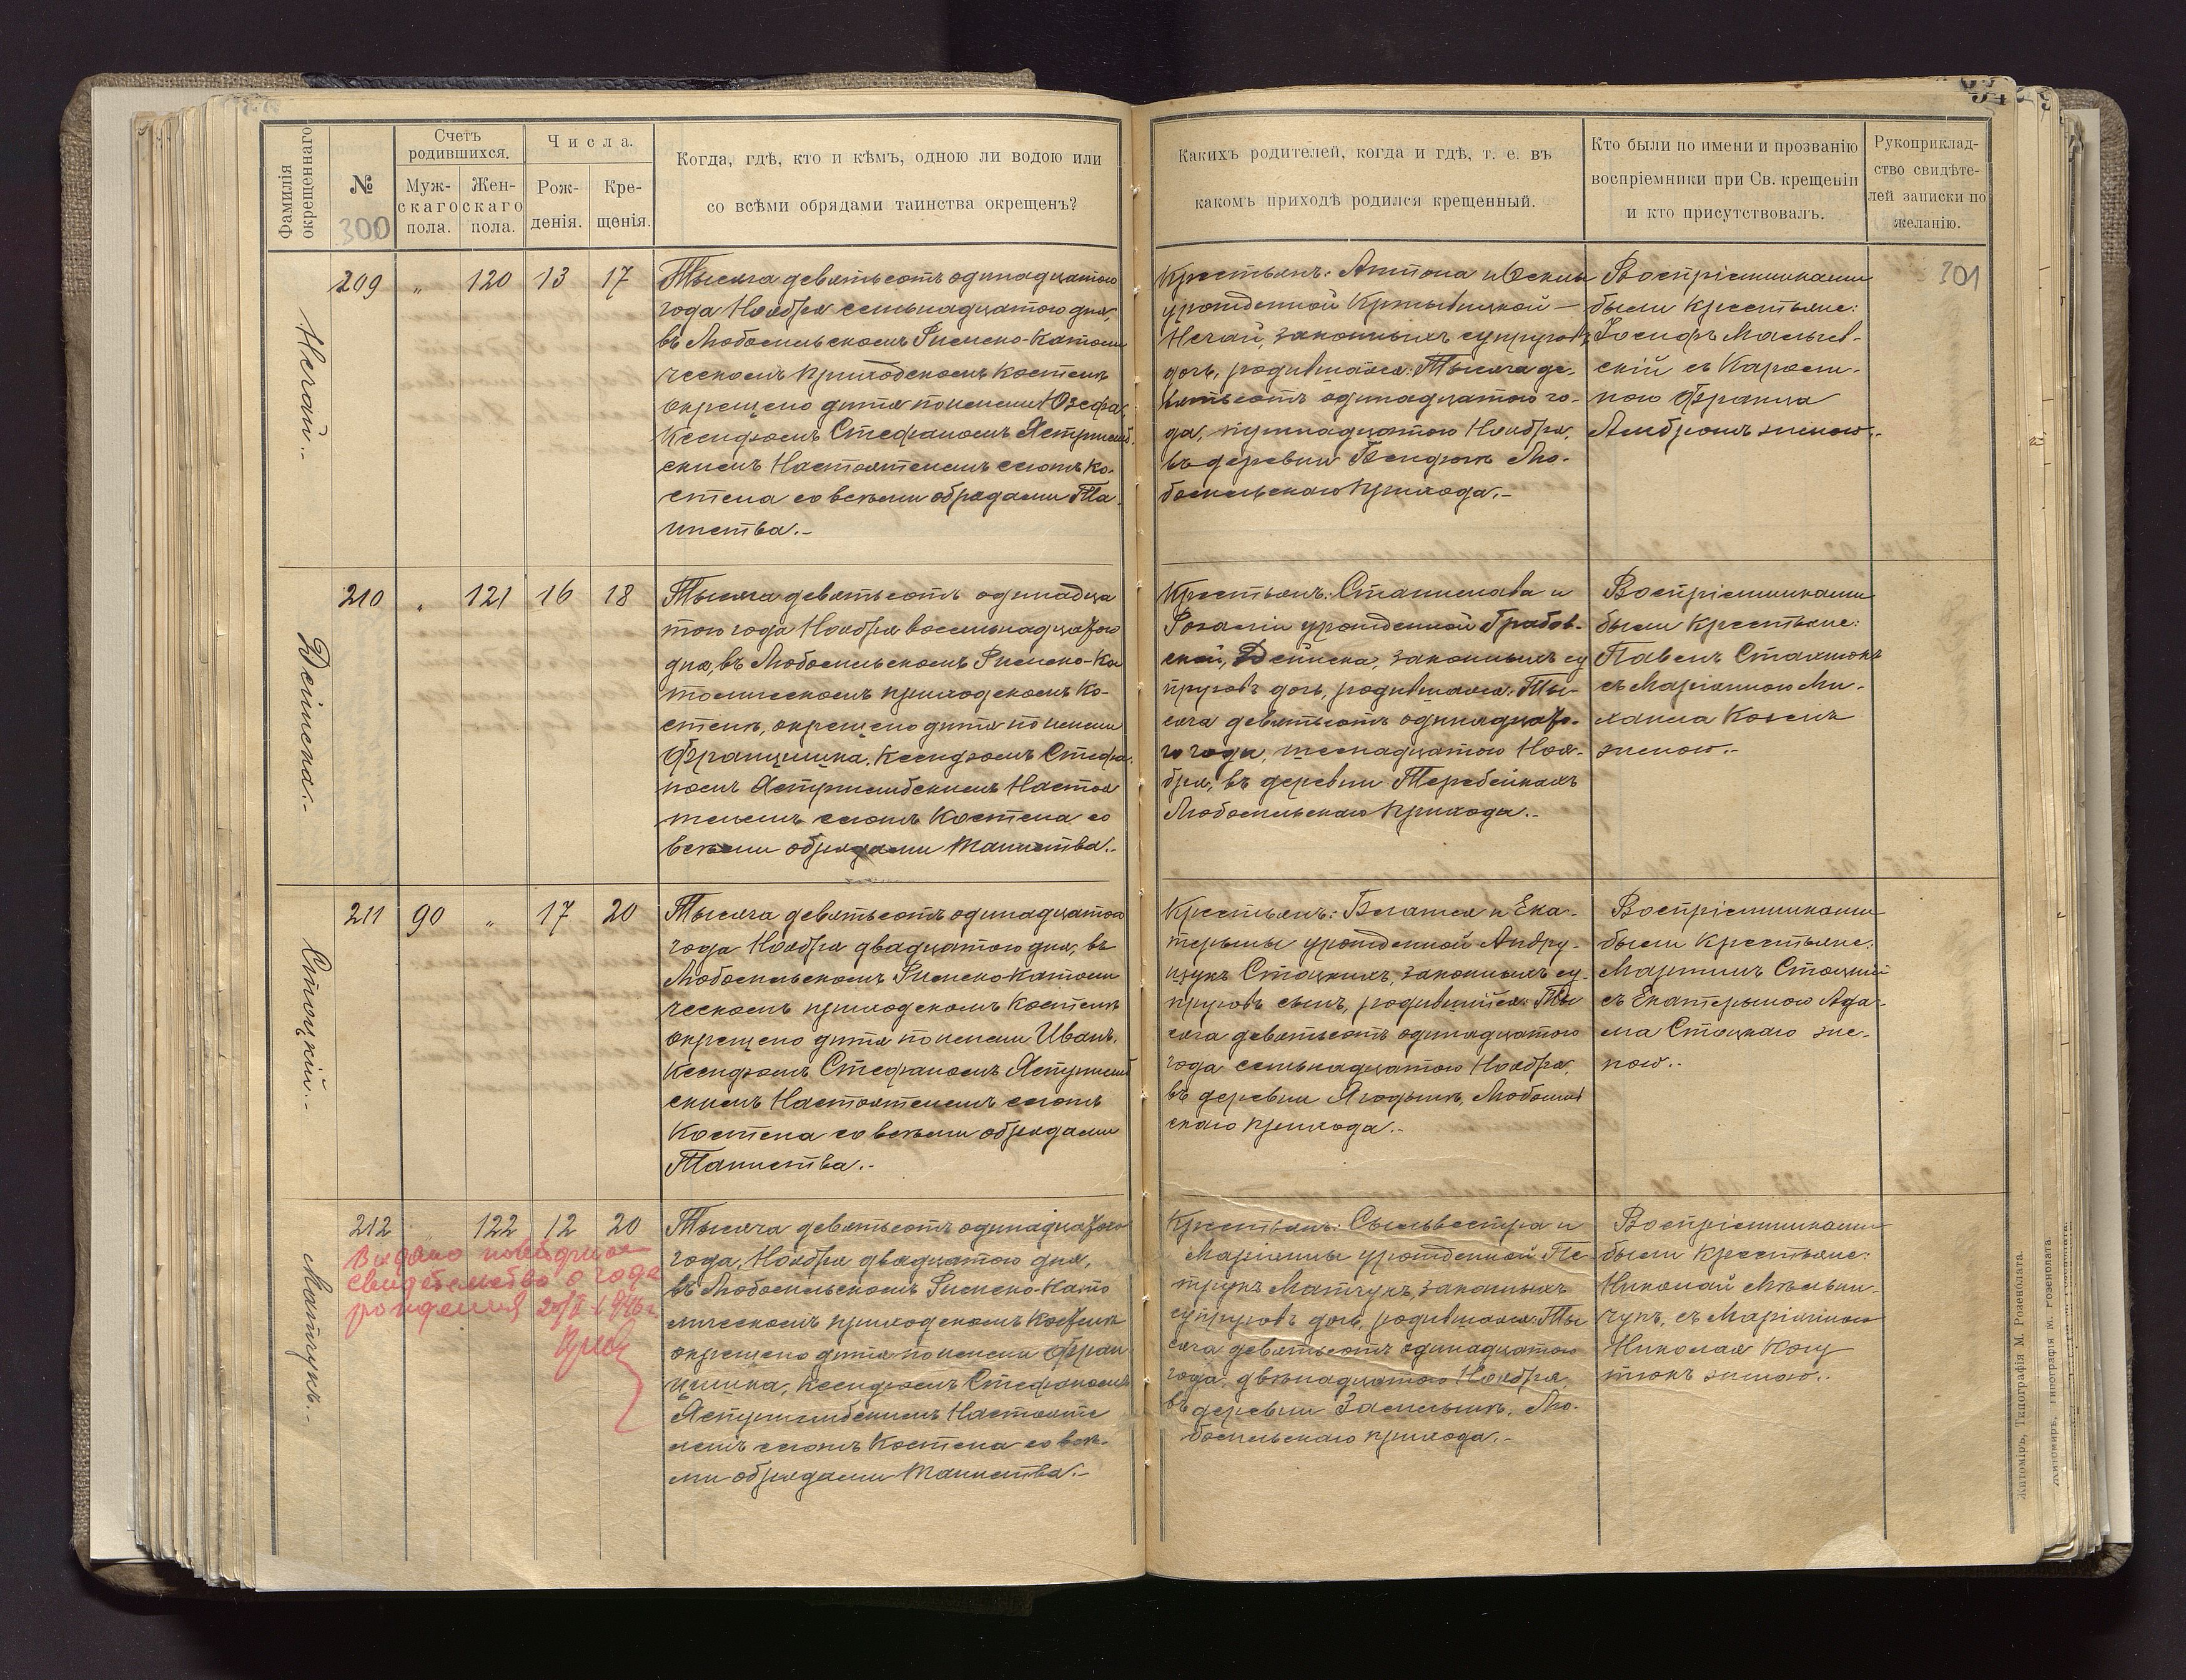 Фамилія окрещеннаго
№
300
Счетъ родившихся.
Муж-
скаго
пола.
Жен-
скаго
пола.
Числа.
Рож-
денія.
Кре-
щенія.
Когда, гдѣ, кто и кѣмъ, одною ли водою или
со всѣми обрядами таинства окрещенъ?
Какихъ родителей, когда и гдѣ, т. е. въ
какомъ приходѣ родился крещенный.
Кто были по имени и прозванію
воспріемники при Св. крещеніи
и кто присутствовалъ.
Рукоприклад-
ство свидѣте-
лей записки по
желанію.
301
Нечай.-
209 " 120 13 17
Тысяча девятьсотъ одинадцатого
года Ноября семьнадцатого дня,
въ Любомльскомъ Римско-Католи
ческомъ приходскомъ Костелѣ
окрещено дитя по имени Юзефа,
Ксендзомъ Стефаномъ Ястржемб.
скимъ Настоятелемъ сего Ко-
стела со всѣми обрядами Та-
инства.-
Крестьянъ: Антона и
урожденной
Нечай, законныхъ супруговъ
дочь, родившаяся: Тысяча де-
вятьсотъ одинадцатого го-
да, тринадцатого Ноября,
въ деревни Лю-
бомльскаго прихода.-
Воспріемниками
были крестьяне:
Іосифъ Мальчев-
скій съ Кароли-
ною Франца
женою.-
Дейнека.-
210 " 121 16 18
Тысяча девятьсотъ одинадца
того года Ноября восемьнадцатого
дня, въ Любомльскомъ Римско-Ка
толическомъ приходскомъ Ко-
стелѣ, окрещено дитя по имени
Францишка, Ксендзомъ Стефа-
номъ Ястржембскимъ Настоя
телемъ сего Костела со
всѣми обрядами Таинства.-
Крестьянъ: Станислава и
Розаліи урожденной Грабов-
ской, Дейнека, законныхъ су
пруговъ дочь, родившаяся: Ты-
сяча девятьсотъ одинадцато-
го года, шеснадцатого Ноя-
бря, въ деревни Теребейкахъ
Любомльскаго прихода.-
Воспріемниками
были крестьяне:
Павелъ
съ Маріанною Ми-
хаила Козелъ
женою.-
Стоцкій.-
211 90 " 17 20
Тысяча девятьсотъ одинадцатого
года Ноября двадцатого дня, въ
Любомльскомъ Римско Католи
ческомъ приходскомъ Костелѣ
окрещено дитя по имени Иванъ,
Ксендзомъ Стефаномъ Ястржемб
скимъ Настоятелемъ сего
Костела со всѣми обрядами
Таинства.-
Крестьянъ: Игнатія и Ека-
терины урожденной Андру-
щукъ Стоцкихъ, законныхъ су-
пруговъ сынъ, родившійся: Ты
сяча девятьсотъ одинадцатого
года семьнадцатого Ноября,
въ деревни Ягодынѣ, Любомль
скаго прихода.-
Воспріемниками
были крестьяне:
Мартинъ Стоцкій
съ Екатериною Ада-
ма Стоцкаго же-
ною.-
Матчукъ.-
212 " 122 12 20
Выдано повторное
свидетельство о годе
рождения 20/II 1946 г.
Тысяча девятьсотъ одинадцатого
года, Ноября двадцатого дня,
въ Любомльскомъ Римско-Като
лическомъ приходскомъ Костелѣ
окрещено дитя по имени Фран
цишка, Ксендзомъ Стефаномъ
Ястржембскимъ Настояте
лемъ сего Костела со всѣ-
ми обрядами Таинства.-
Крестьянъ: Сыльвестра и
Маріанны урожденной Пе-
трукъ Матчукъ, законныхъ
супруговъ дочь, родившаяся: Ты
сяча девятьсотъ одинадцатого
года, двѣнадцатого Ноября
въ деревни Лю-
бомльскаго прихода.-
Воспріемниками
были крестьяне:
Николай Мѣльни-
чукъ, съ Маріанною
Николая
женою.-
Житоміръ, Типографія М. Розенблата.
Житоміръ, Типографія М. Розенблата